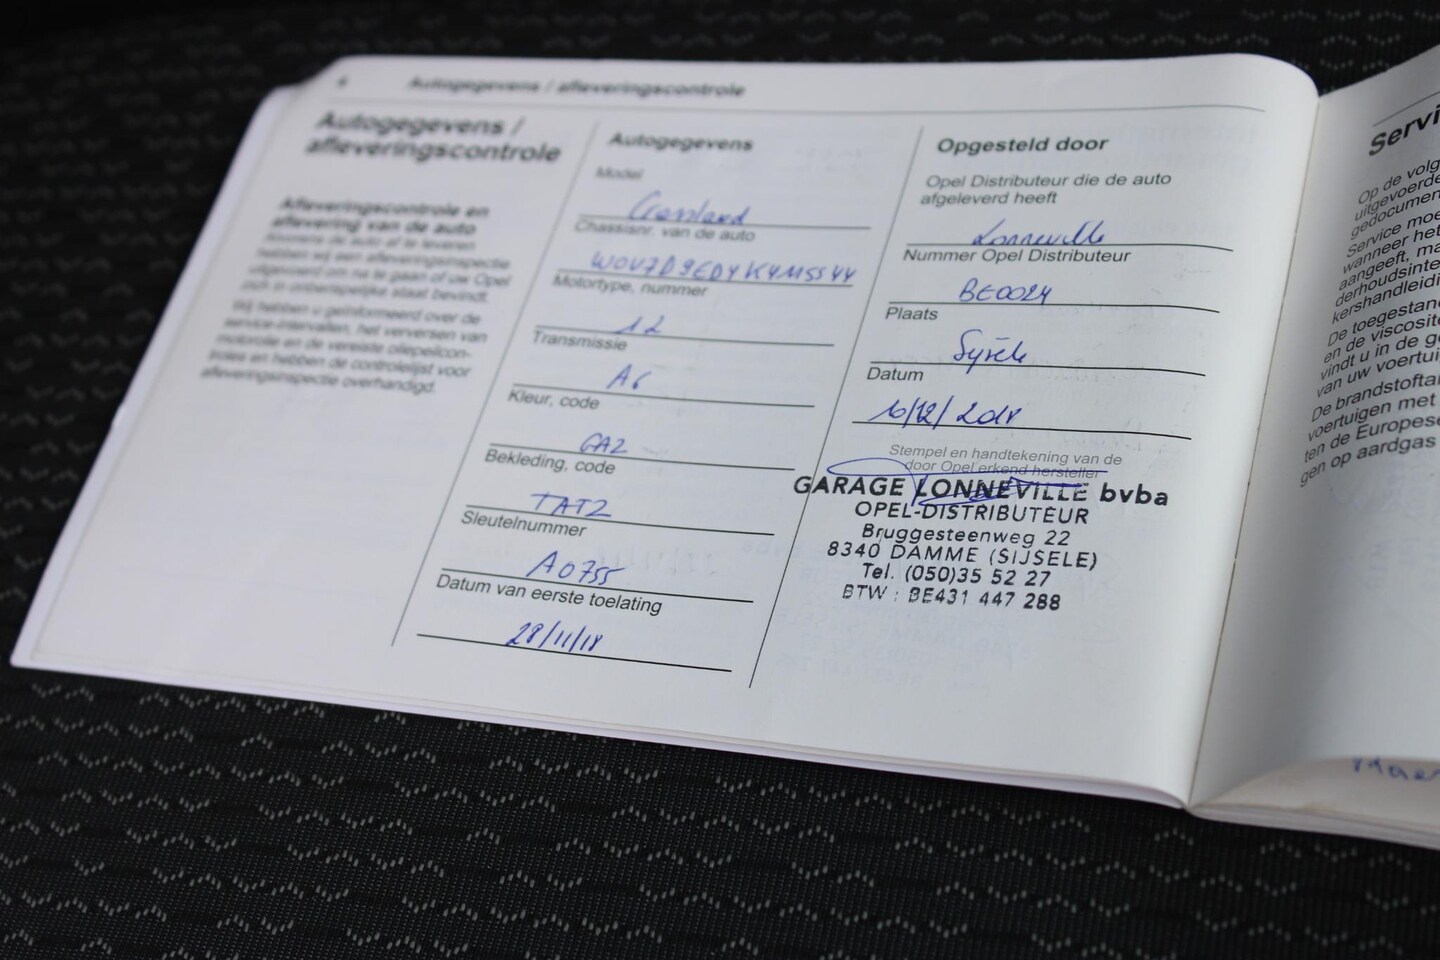 Autogegevens / afleveringscontrole
Autogegevens /
afleveringscontrole
Afleveringscontrole en
aflevering van de auto
Alvorens de auto af te leveren
hebben wij een afleveringsinspectie
uitgevoerd om na te gaan of uw Opel
zich in onberispelijke staat bevindt.
Wij hebben u geïnformeerd over de
service-intervallen, het verversen van
motorolie en de vereiste oliepeilcon-
troles en hebben de controlelijst voor
afleveringsinspectie overhandigd.
Autogegevens
Model
Crossland
Chassisnr. van de auto
Motortype, nummer
12
Transmissie
A6
Kleur, code
GAZ
Bekleding, code
TATZ
Sleutelnummer
A0755
Datum van eerste toelating
28/11/18
Opgesteld door
Opel Distributeur die de auto
afgeleverd heeft
Lonneville
Nummer Opel Distributeur
BE0024
Plaats
Datum
10/12/2018
Stempel en handtekening van de
door Opel erkend hersteller
GARAGE LONNEVILLE bvba
OPEL-DISTRIBUTEUR
Bruggesteenweg 22
8340 DAMME (SIJSELE)
Tel. (050)35 52 27
BTW : BE431 447 288
Servi
Op de volg
uitgevoerde
gedocumen
Service moe
wanneer het
aangeeft, ma
derhoudsinte
kershandleidi
De toegestan
en de viscosite
vindt u in de ge
van uw voertui
De brandstofta
voertuigen met
ten de Europese
gen op aardgas